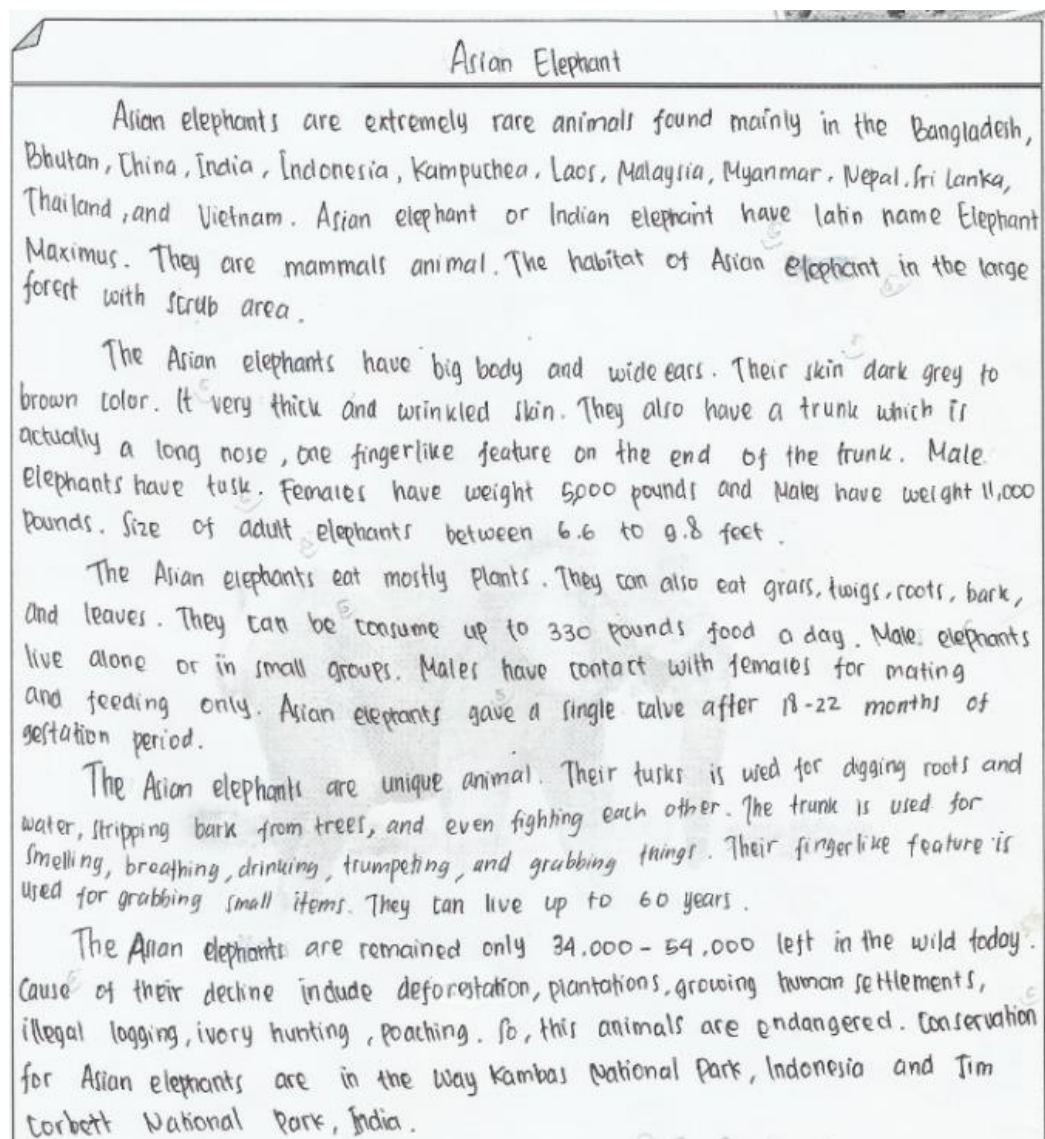 Asian Elephant
Asian elephants are extremely rare animals found mainly in the Bangladesh,
Bhutan, China, India, Indonesia, Kampuchea, Laos, Malaysia, Myanmar, Nepal, Sri Lanka,
Thailand, and Vietnam. Asian elephant or Indian elephant have latin name Elephant
Maximus. They are mammals animal. The habitat of Asian elephant in the large
forest with scrub area.
The Asian elephants have big body and wide ears. Their skin dark grey to
brown color. It very thick and wrinkled skin. They also have a trunk which is
actually a long nose, one fingerlike feature on the end of the trunk. Male
elephants have tusk. Females have weight 5,000 pounds and Males have weight 11,000
pounds. Size of adult elephants between 6.6 to 9.8 feet.
The Asian elephants eat mostly plants. They can also eat grass, twigs, roots, bark,
and leaves. They can be consume up to 330 pounds food a day. Male elephants
live alone or in small groups. Males have contact with females for mating
and feeding only. Asian elephants gave a single calve after 18-22 months of
gestation period.
The Asian elephants are unique animal. Their tusks is used for digging roots and
water, stripping bark from trees, and even fighting each other. The trunk is used for
smelling, breathing, drinking, trumpeting, and grabbing things. Their fingerlike feature is
used for grabbing small items. They can live up to 60 years.
The Asian elephants are remained only 34.000 - 54.000 left in the wild today.
Cause of their decline include deforestation, plantations, growing human settlements,
illegal logging, ivory hunting, poaching. So, this animals are endangered. Conservation
for Asian elephants are in the Way Kambas National Park, Indonesia and Jim
Corbett National Park, India.